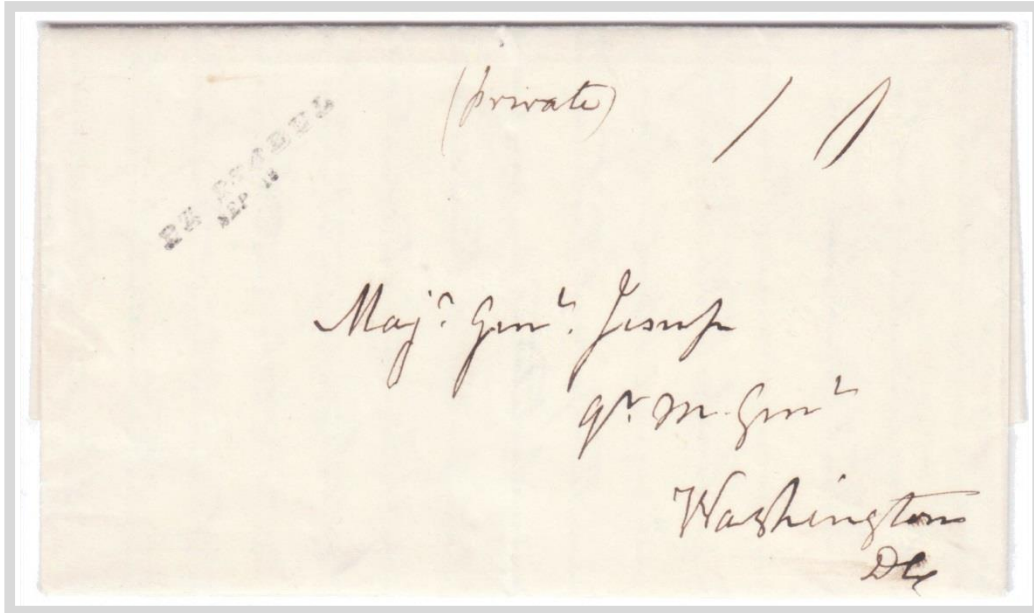 (private)
SEP
Maj.r Gen.l Jesup
Qr. M. Gen.l
Washington
DC